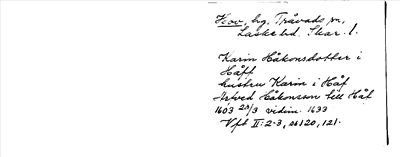 Hov, by, Tråvads sn,
Laske hd. Skar. l.
Karin Håkonsdotter i
Håff
hustru Karin i Håf
Artved Håkonsson till Håf
1603 25/3 vidim. 1633
Vfst II: 2-3, s. 120, 121.